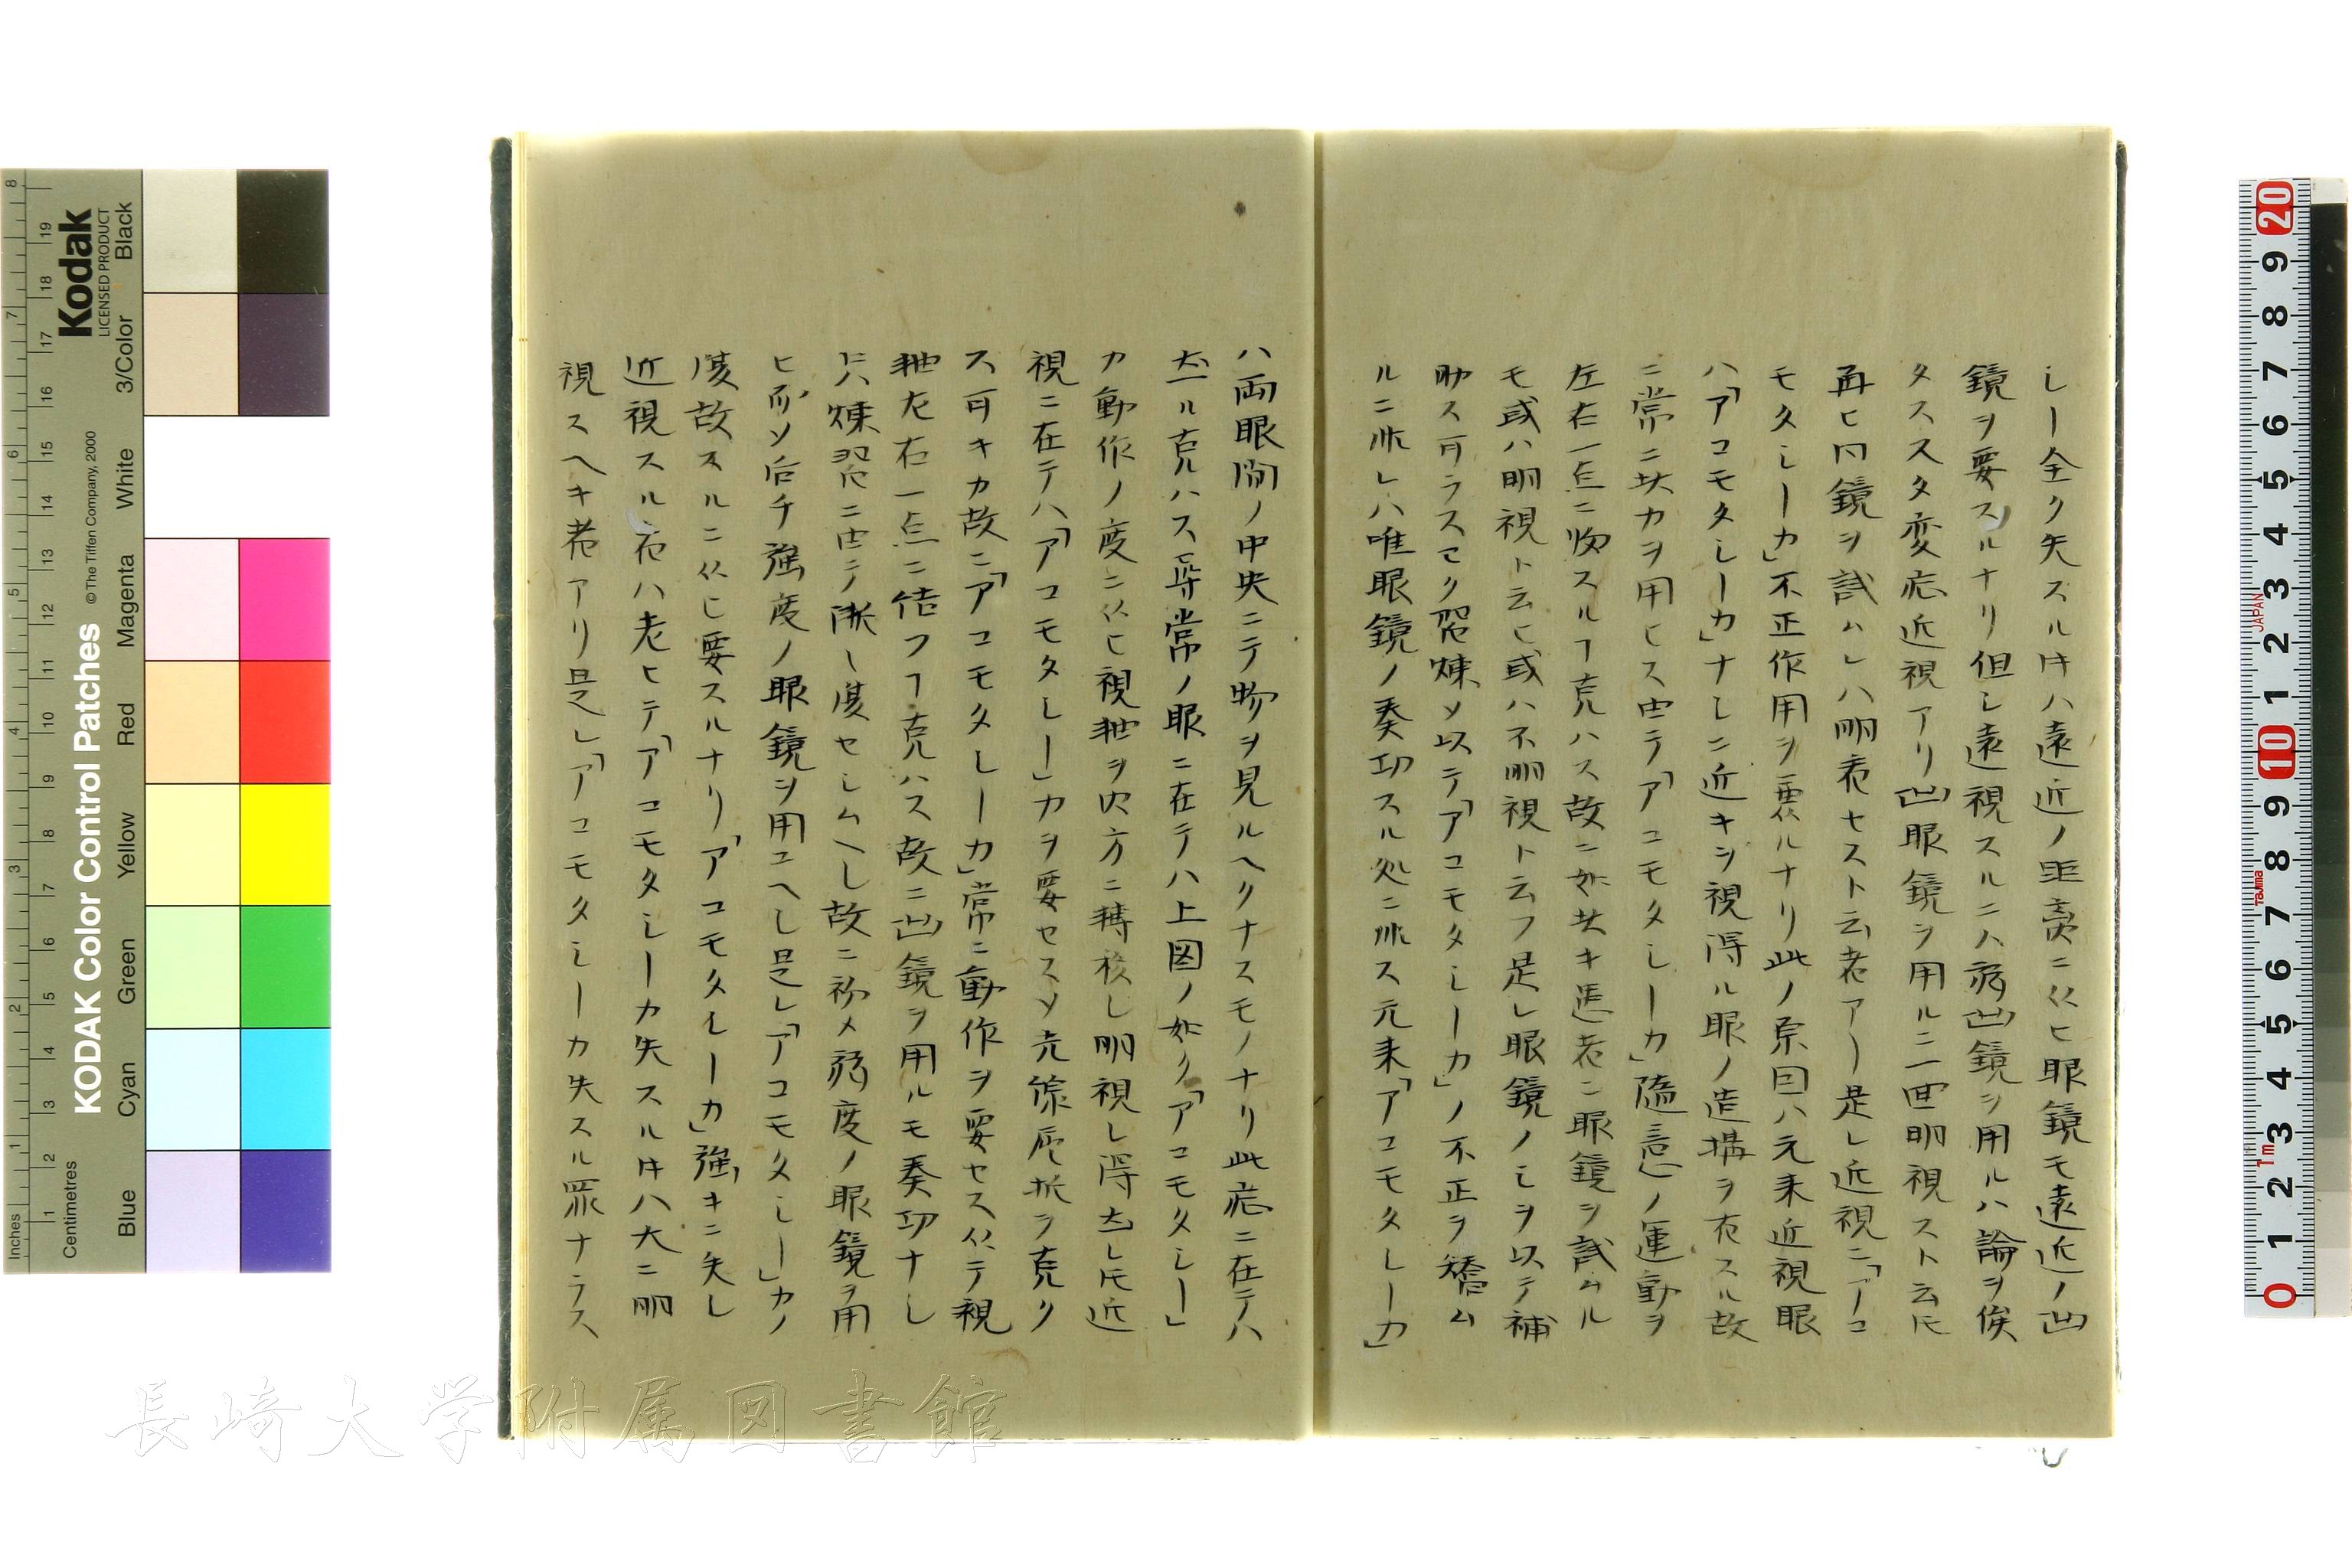 レー全ク失スル𪜈ハ遠近ノ距離ニ従ヒ眼鏡モ遠近ノ凹
鏡ヲ要スルナリ但し遠視スルニハ弱凹鏡ヲ用ルハ論ヲ俟
タス又変応近視アリ凹眼鏡ヲ用ル二三回明視スト云𪜈
再ヒ同鏡ヲ試ムレハ明亮セスト云者アー是レ近視ニ「アコ
モタレーカ」不正作用ヲ要スルナリ此ノ原因ハ元来近視眼
ハ「アコモタレーカ」ナしニ近キヲ視得ル眼ノ造構ヲ有スル故
ニ常ニ其力ヲ用ヒス由テ「アコモタレーカ」随意ノ運動ヲ
左右一点ニスルヿ克ハス故ニ如其キ患者ニ眼鏡ヲ試ムル
モ或ハ明視ト云ヒ或ハ不明視ト云フ是レ眼鏡ノミヲ以テ補
助ス可ラス全ク習煉ヲ以テ「アコモタレーカ」ノ不正ヲ矯ム
ルニ非レハ唯眼鏡ノ奏功スル処ニ非ス元来「アコモタレーカ」
ハ両眼間ノ中央ニテ物ヲ見ルヘクナスモノナリ此応ニ在テハ
ル克ハス尋常ノ眼ニ在テハ上図ノ如ク「アコモタレー」
カ動作ノ度ニ従ヒ視軸ヲ内方ニ転移し明視し得ト𪜈近
視ニ在テハ「アコモタレー」カヲ要セスソ光線屈折ヲ克ク
ス可キカ故ニ「アコモタレーカ」常ニ動作ヲ要セス従テ視
軸左右一点ニ結フヿ克ハス故ニ凹鏡ヲ用ルモ奏功ナし
𪜈煉習ニ由テ漸ク復セしムヘし故ニ初メ弱度ノ眼鏡ヲ用
ヒ而ソ后チ強度ノ眼鏡ヲ用ユヘし是レ「アコモタレー」カノ
復故スルニ従ヒ要スルナリ「アコモタレーカ」強キニ失し
近視スル者ハ老ヒテ「アコモタレーカ失スル𪜈ハ大ニ明
視スヘキ者アリ是レ「アコモタレーカ失スル罪ナラス
長崎大学附属図書館
Kodak
LICENSED PRODUCT
KODAK Color Control Patches
© The Tiffen Company, 2000
Inches
Centimetres
Blue Cyan Green Yellow Red Magenta White 3/Color Black
JAPAN
Tajima
1m